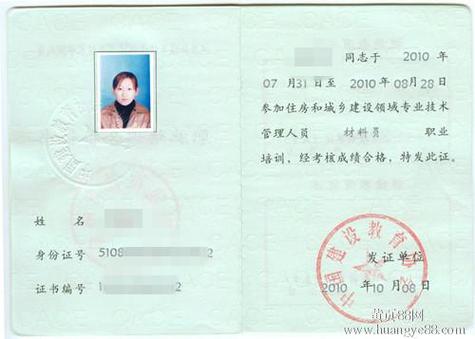 姓 名
身份证号 5108 2
证书编号 1 2
同志于 2010
年 07 月 31 日至 2010 年 08 月 28 日
参加住房和城乡建设领域专业技术
管理人员 材料员 职业
培训，经考核成绩合格，特发此证。
中国建设教育协会
发证单位
2010 年 10 月 08 日
黄页88网
www.huangye88.com